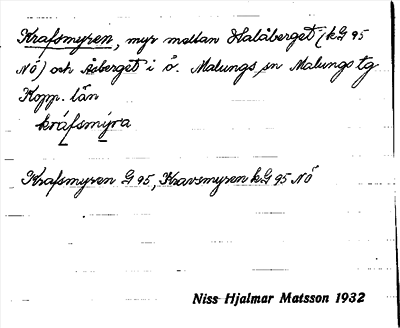 Krafsmyren, myr mellan Halåberget (kG 95
NÖ) och Åsberget i ö. Malungs sn Malungs tg
Kopp. län
kráfsmỳra
Krafsmyren G 95, Kravsmyren kG 95 NÖ
Niss Hjalmar Matsson 1932